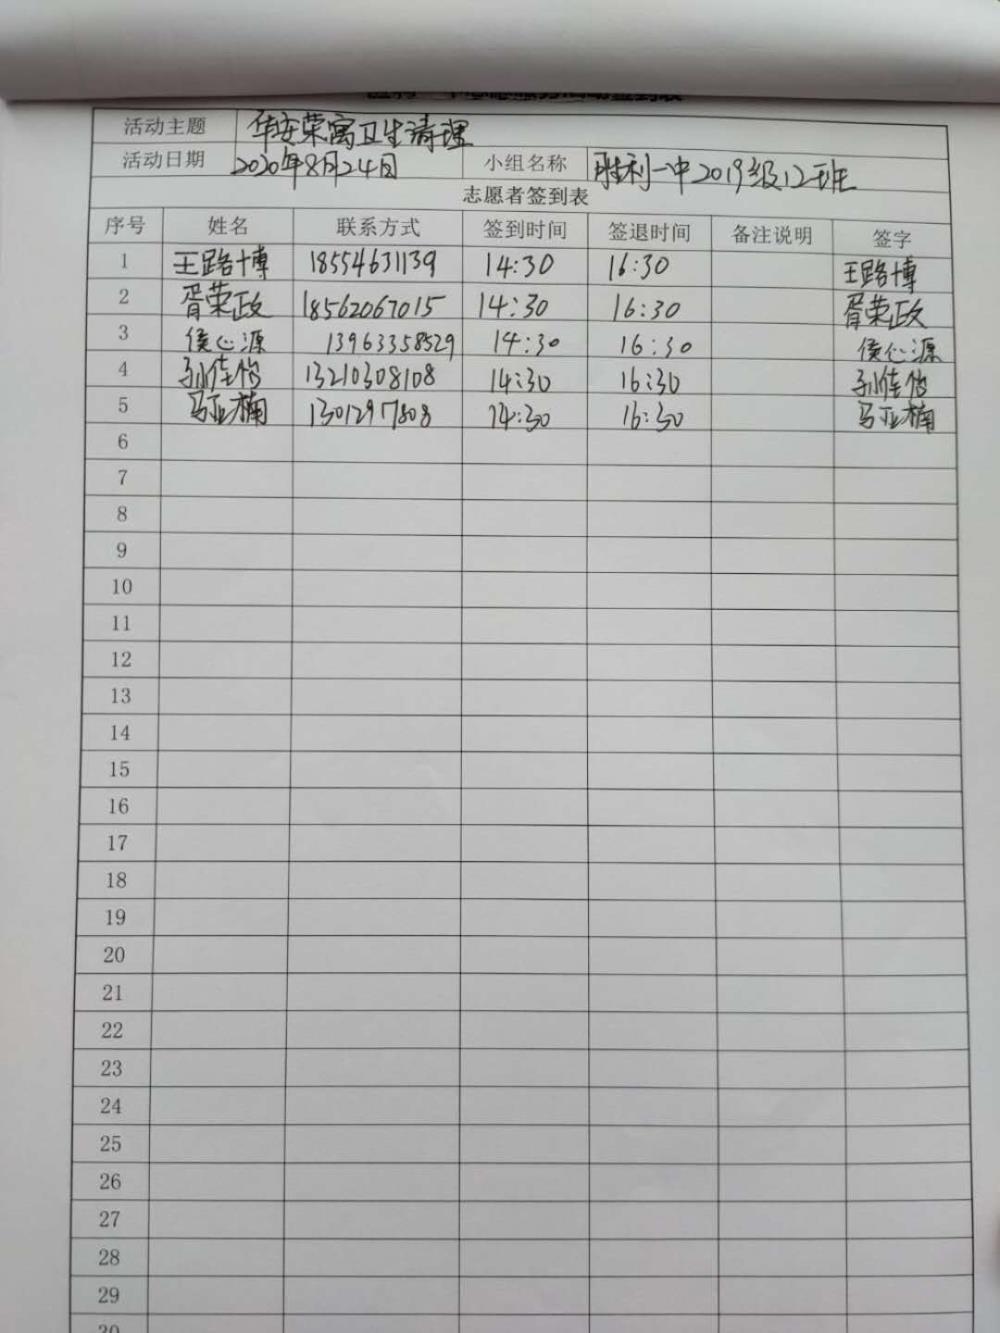 活动主题 华安荣寓卫生清理
活动日期 2020年8月24日 小组名称 胜利一中2019级12班
志愿者签到表
序号 姓名 联系方式 签到时间 签退时间 备注说明 签字
1 王路博 18554631139 14:30 16:30 王路博
2 胥荣政 18562067015 14:30 16:30 胥荣政
3 侯心源 13963358529 14:30 16:30 侯心源
4 孙佳怡 13210308108 14:30 16:30 孙佳怡
5 马亚楠 13012917808 14:30 16:30 马亚楠
6
7
8
9
10
11
12
13
14
15
16
17
18
19
20
21
22
23
24
25
26
27
28
29
30